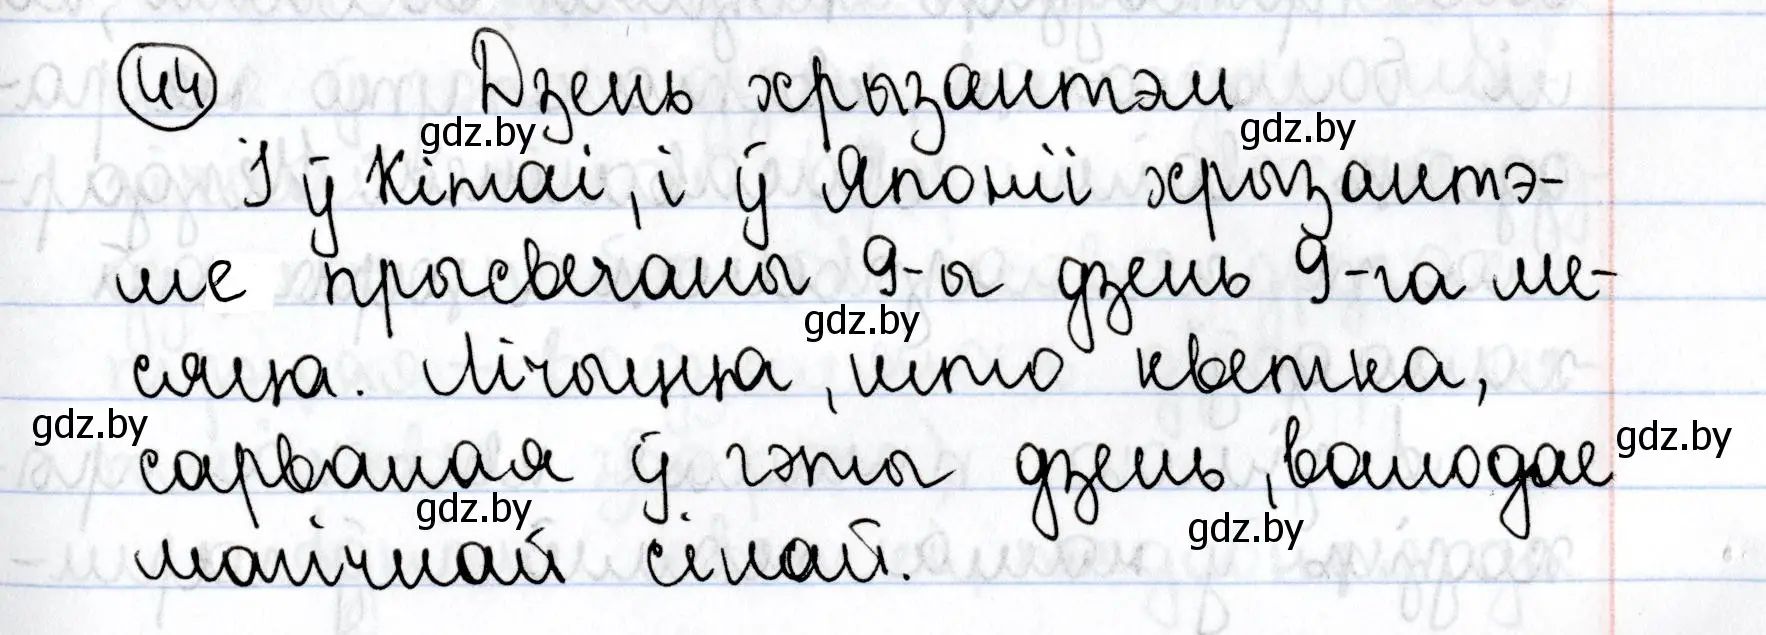 44 Дзень хрызантэм
gdz.by gdz.by
І ў Кітаі, і ў Японіі хрызантэ-
ме прысвечаны 9-ы дзень 9-га ме-
gdz.by
сяца. Лічыцца, што кветка,
gdz.by gdz.by
сарваная ў гэты дзень, валодае
gdz.by gdz.by
магічнай сілай.